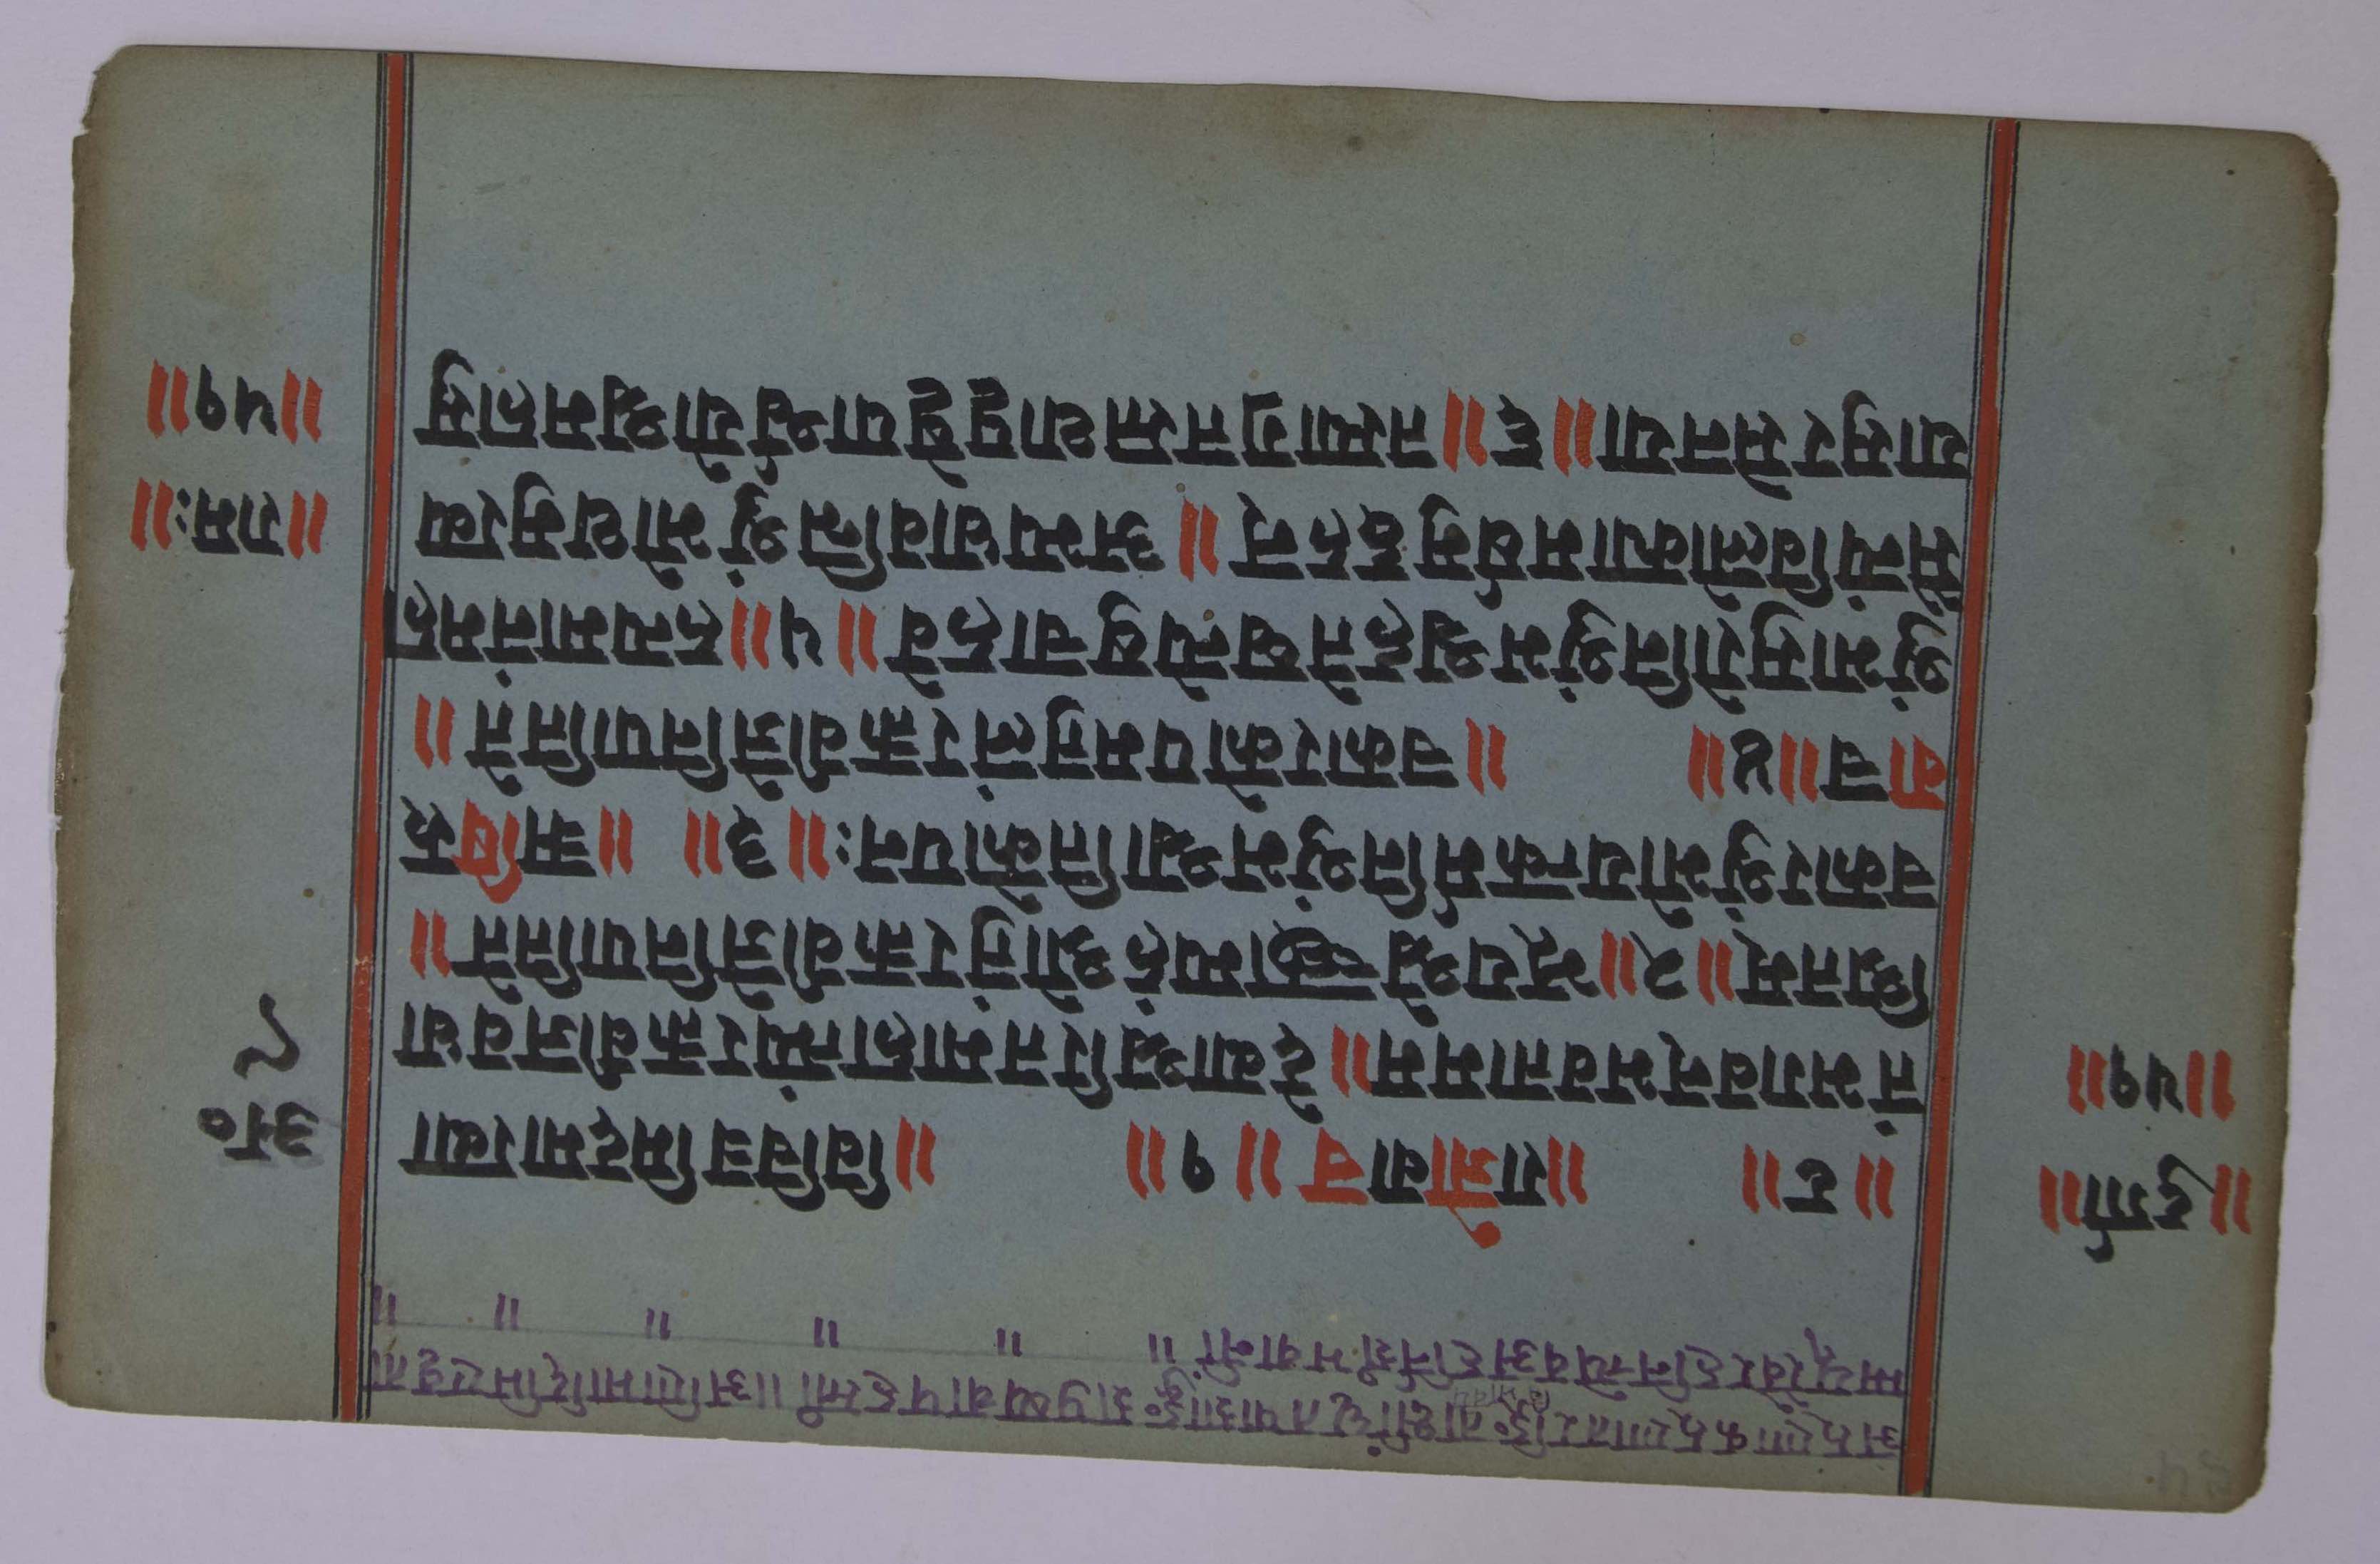 अरुणाकरुणातरङ्गिताक्षीं धृतपाशाङ्कुशपुष्पचापहस्ती ॥ अणिमादिभिरावृता
म्मयूरवैरहनित्येव अहर्निशं भवानीं ॥ ॥ ॥ ॥ ॥ ॥
॥ दुर्गा ॥
॥ ५१ ॥
॥ ८ ॥ ॥ राजोवाच ॥ १ ॥ ॥ विचित्रमिदमाख्या
तं भगवन् भवता मम ॥ देव्याश्चरितमाहात्म्यं रक्तवीजवधा
श्रितम् ॥ २ ॥ भूयश्चेच्छाम्यहं श्रोतुं रक्तवीजे निपातिते ॥
चकार शुंभो यत्कर्म निशुंभश्चातिकोपनः ॥ ३ ॥ ॥ ऋषिरु
वाच ॥ ४ ॥ ॥ चकार कोपमतुलं रक्तवीजे निपातिते ॥
शुंभासुरो निशुंभश्च हतेष्वन्येषु चाहवे ॥ ५ ॥ हन्यमानं महा
सैन्यं विलोक्यामर्षमुद्वहन् ॥ अभ्यधावन्निशुंभोथ मुख्य
यासुरसेनया ॥ ६ ॥ तस्याग्रतस्तथा पृष्ठे पार्श्वयोश्च महासु
अ०
९
॥ रामः ॥
॥ ५१ ॥